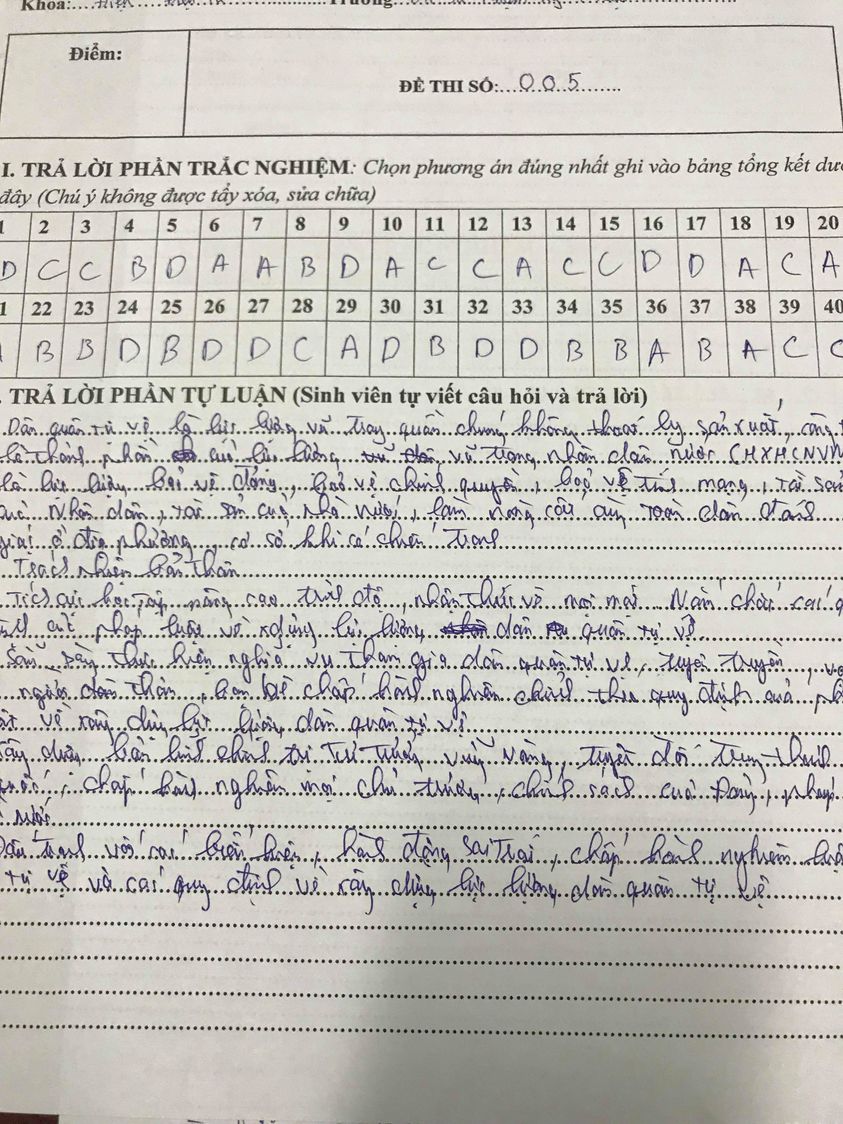 Khoa:
Điểm:
ĐỀ THI SỐ:...005........
I. TRẢ LỜI PHẦN TRẮC NGHIỆM: Chọn phương án đúng nhất ghi vào bảng tổng kết dư
đây (Chú ý không được tẩy xóa, sửa chữa)
1 2 3 4 5 6 7 8 9 10 11 12 13 14 15 16 17 18 19 20
D C C B D A A B D A C C A C C D D A C A
1 22 23 24 25 26 27 28 29 30 31 32 33 34 35 36 37 38 39 40
B B D B D D C A D B D D B B A B A C C
. TRẢ LỜI PHẦN TỰ LUẬN (Sinh viên tự viết câu hỏi và trả lời)
Dân quân tự vệ là lực lượng vũ trang quần chúng không thoát ly sản xuất, công t
là thành phần của lực lượng vũ trang nhân dân nước CHXHCNVN
là lực lượng bảo vệ đảng, bảo vệ chính quyền, bảo vệ tính mạng, tài sả
của Nhân dân, tài sản của nhà nước, làm nòng cốt cùng toàn dân đánh
giặc ở địa phương, cơ sở khi có chiến tranh
Trách nhiệm bản thân
Tích cực học tập nâng cao trình độ, nhận thức về mọi mặt. Nắm chắc các q
pháp luật về xây dựng lực lượng dân quân tự vệ
Sẵn sàng thực hiện nghĩa vụ tham gia dân quân tự vệ, tuyên truyền, vậ
người thân, bạn bè chấp hành nghiêm chỉnh theo quy định của ph
về xây dựng lực lượng dân quân tự vệ
bản lĩnh chính trị tư tưởng vững vàng, tuyệt đối trung thành
chấp hành nghiêm mọi chủ trương, chính sách của Đảng, pháp
nước
Đấu tranh với các biểu hiện, hành động sai trái, chấp hành nghiêm luậ
tự vệ và các quy định về xây dựng lực lượng dân quân tự vệ